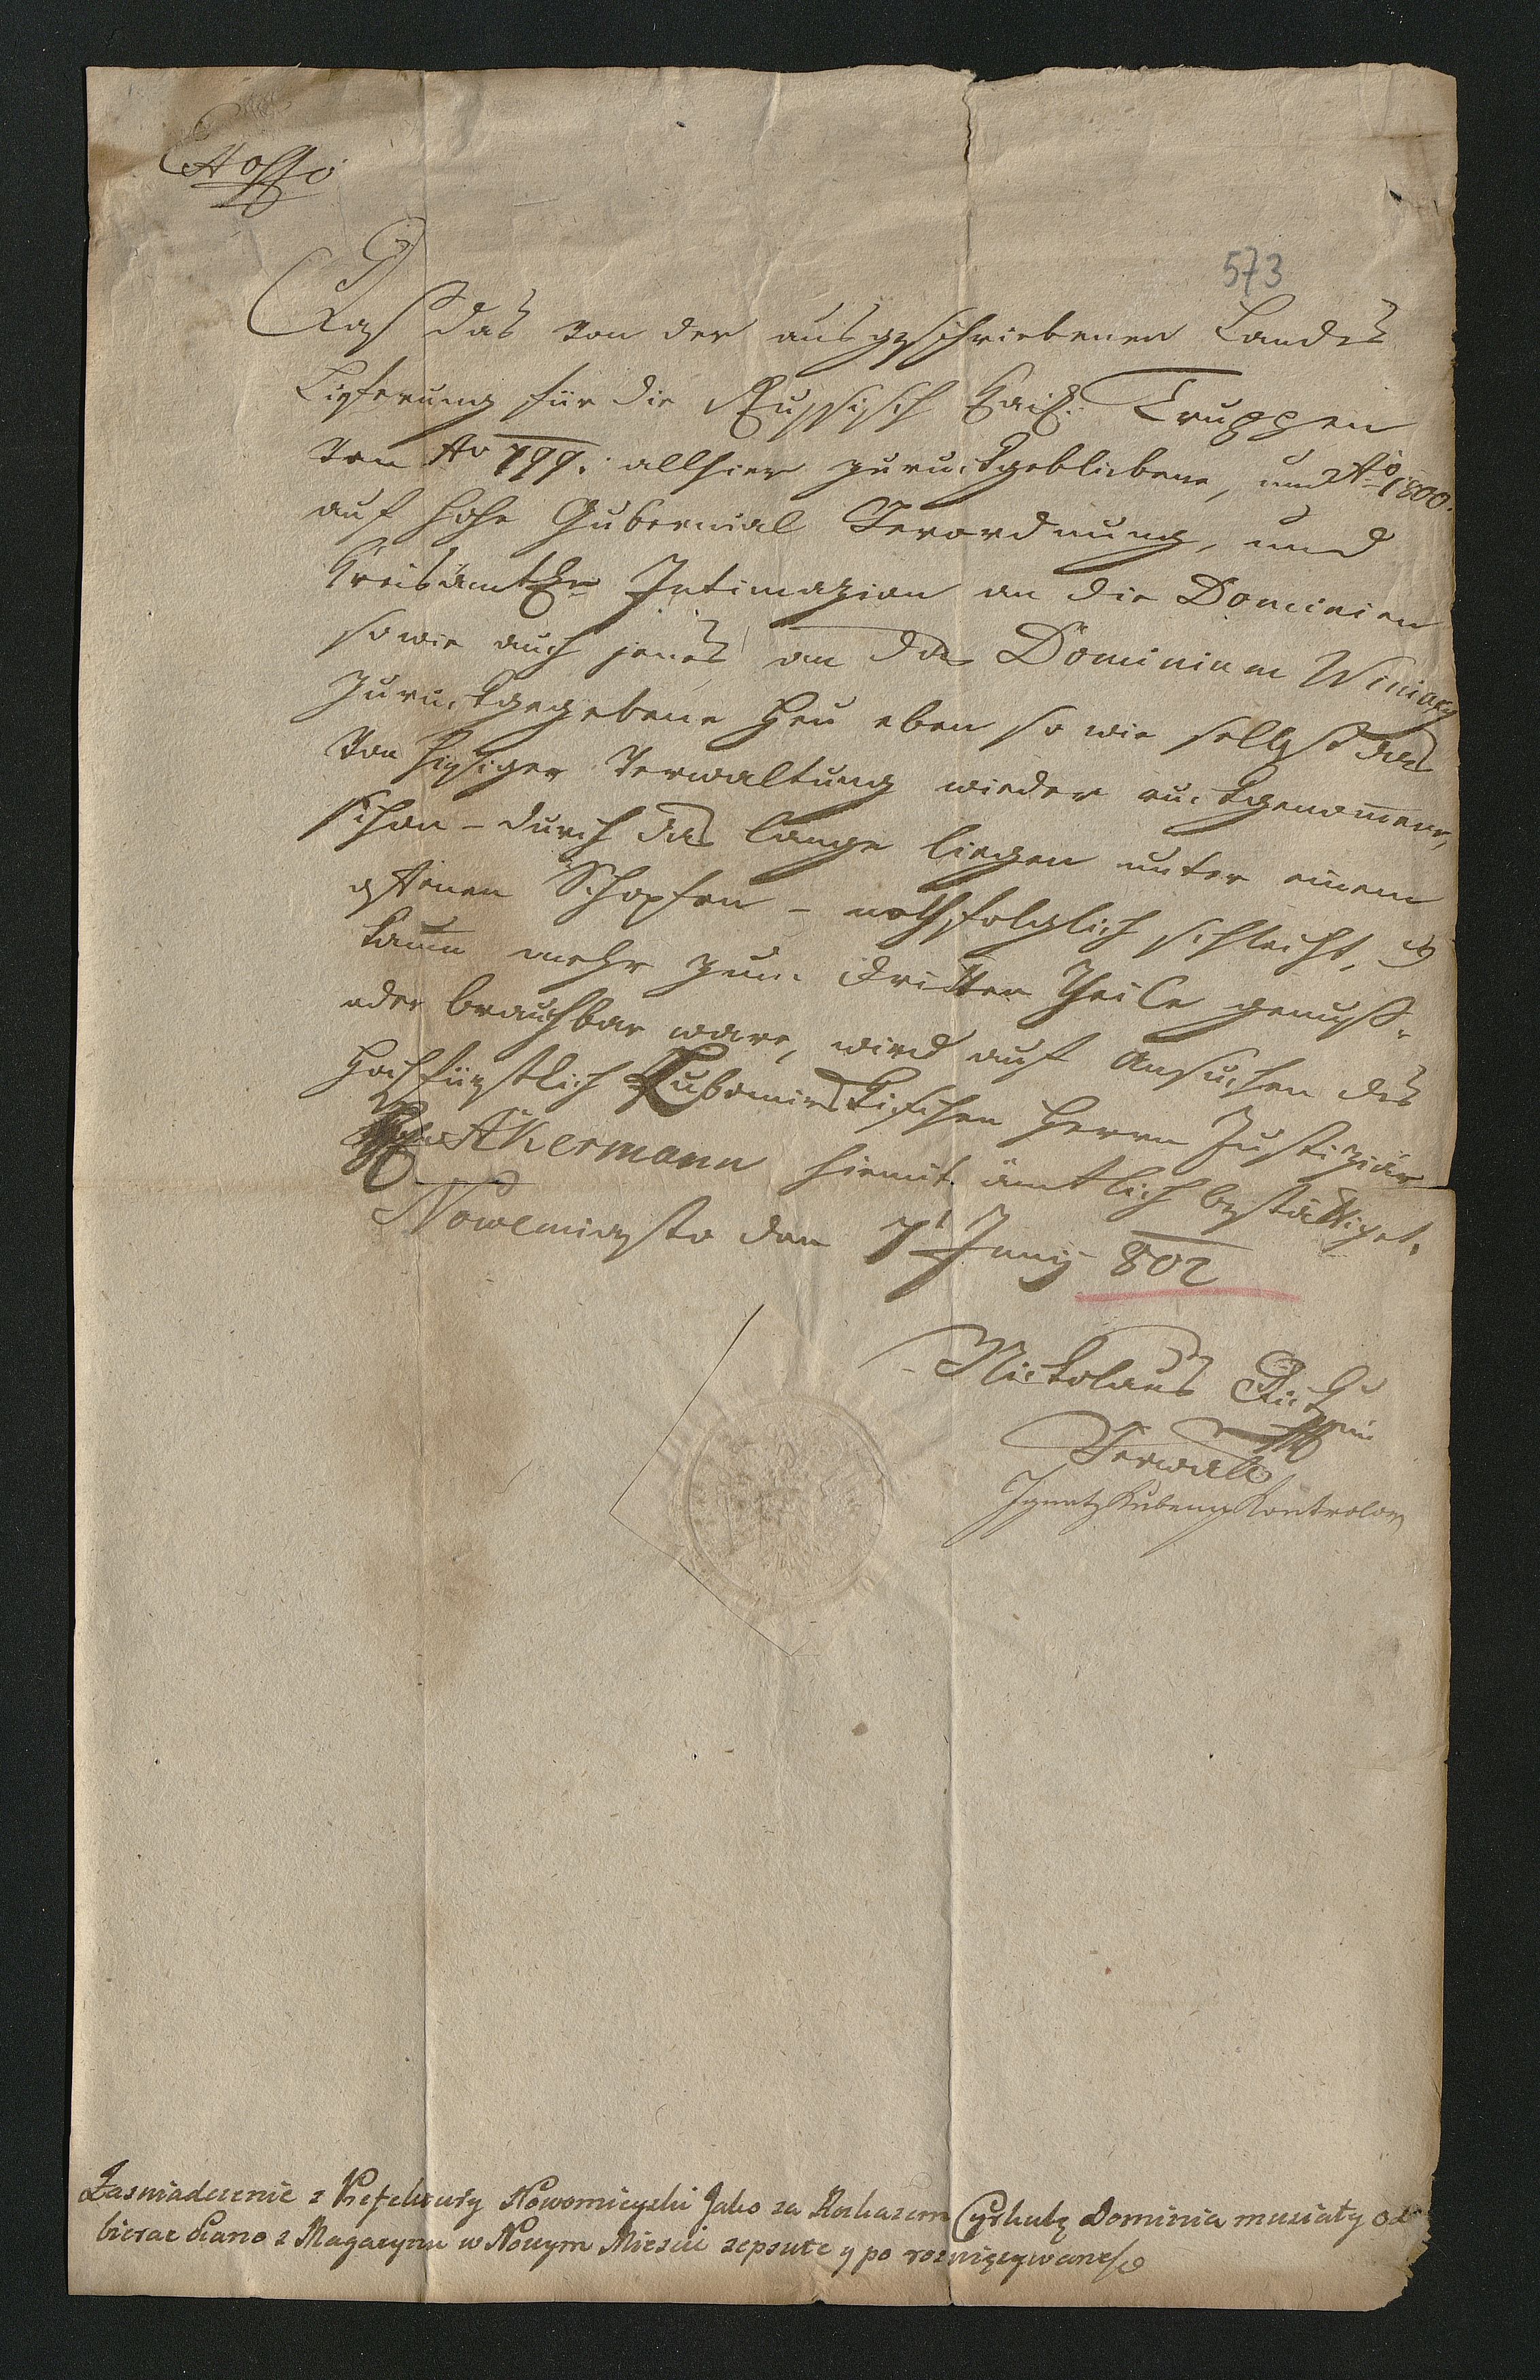 573
Daß das von der ausgeschriebenen Landes
Lieferung für die Russisch Kais: Truppen
von Ao 799. allhier zurückgebliebene, und Ao 1800.
auf hohe Gubernial Verordnung, und
Kreisämtle Intimazion an die Dominien
sowie auch jenes an das Dominium Winiary
zurückgegebene Heu eben so wie selbst das
von hiesiger Verwaltung wieder rückgenomene,
schon – durch das lange liegen unter einem
offenen Schopfen – nothfolglich schlecht, u
kaum mehr zum dritten Theile genuß-
oder brauchbar ware, wird auf Ansuchen des
Hochfürstlich Lubomirskischen Herrn Justiziär
Akermann hiemit ämtlich bestättiget.
Nowemiasto den 7t Juny 802
Nickolaus
Verwalt
Ignatz Kontrolor
Zaswiadczenie z Prefektury Nowomieyski Jako za Roskazem Cyrkułu Dominia musiały od-
bierac Siano z Magazynu w Nowym Miescie zepsute y po rozwięzywane